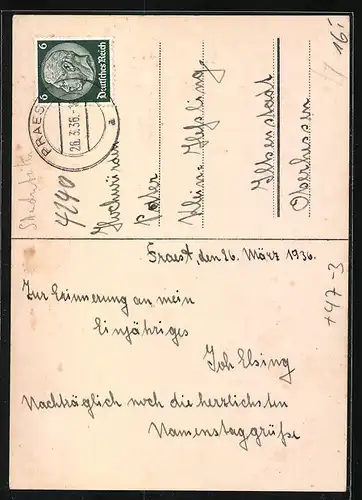 6 6
Deutsches Reich
PRAES
26.3.36.
a
Hochwürden
Pater
Klein-Heßling
Ilbenstadt
Oberhessen
4240
16i
+47-3
Praest, den 26. März 1936.
Zur Erinnerung an mein
Einjähriges
Joh Elsing
Nachträglich noch die herzlichsten
Namenstaggrüße